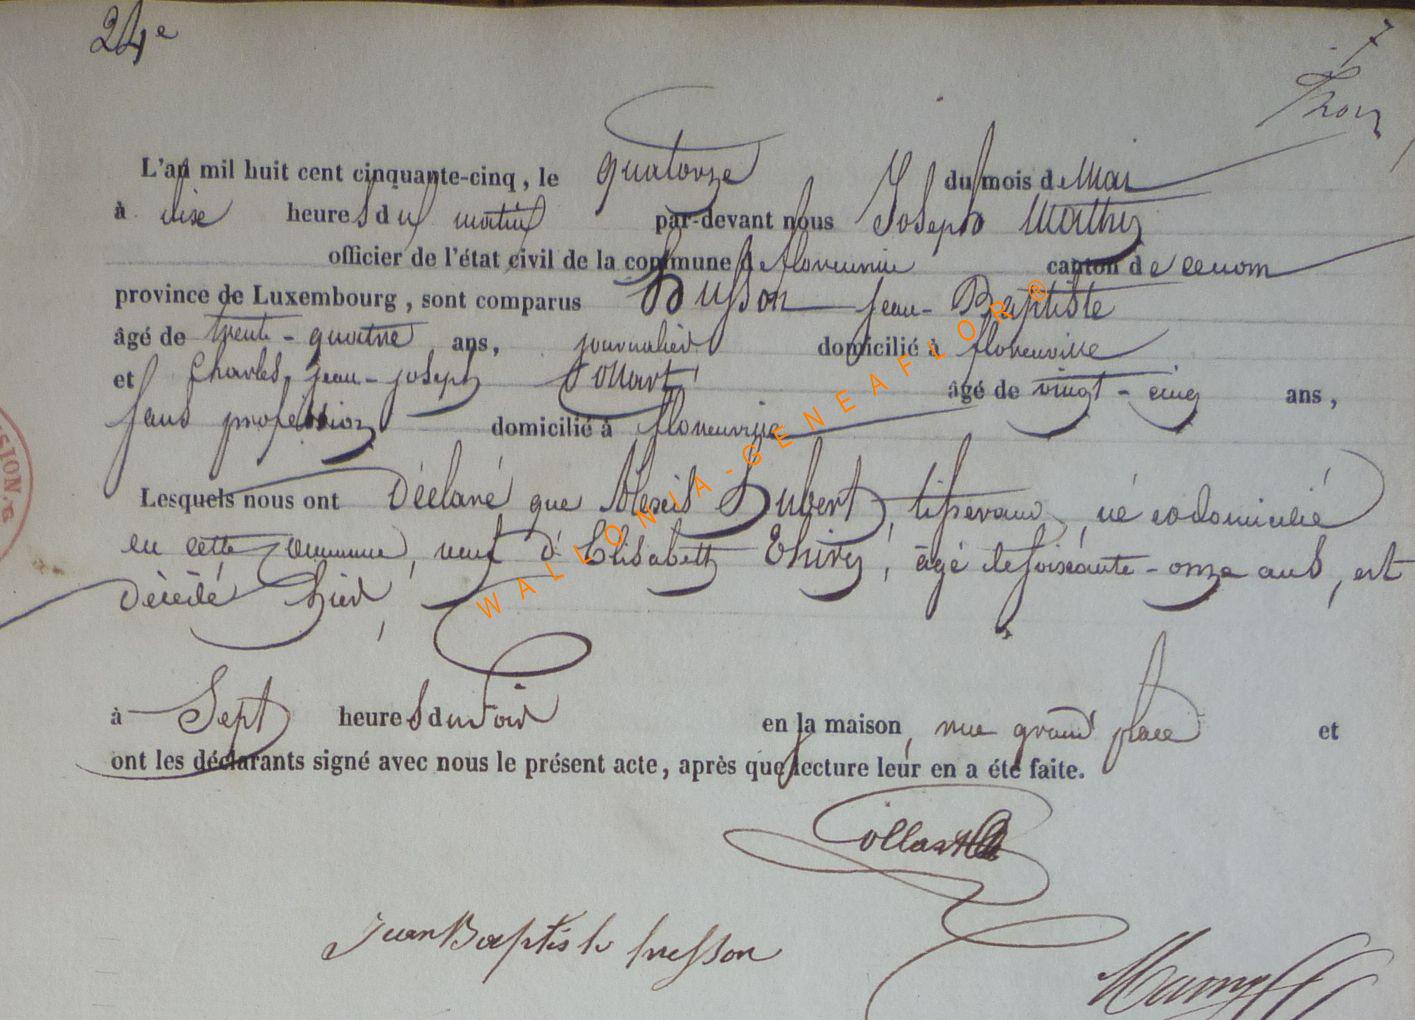 24e
L'an mil huit cent cinquante-cinq, le quatorze du mois de Mai
à dix heures du matin par-devant nous Joseph Mathy
officier de l'état civil de la commune de florenville canton de
province de Luxembourg, sont comparus Husson Jean-Baptiste
âgé de trente-quatre ans, journalier domicilié à florenville
et Charles, jean-joseph Collart âgé de vingt-cinq ans,
sans profession domicilié à florenville
Lesquels nous ont Déclaré que Alexis Hubert, tisserand, né et domicilié
en cette commune, veuf d'Elisabeth Thiry, âgé de soixante-onze ans, est
Décédé hier,
à Sept heures du soir en la maison, rue grand place et
ont les déclarants signé avec nous le présent acte, après que lecture leur en a été faite.
Collart
Jean Baptiste husson
WALLONIA-GENEAFLOR ®
SION.